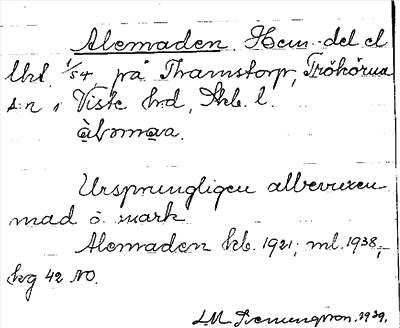 Alemaden. Hem.-del el
lht 1/54 på Thamstorp, Trökörna
s:n i Viste hd, Skb. l.
àlnmaa.
Ursprungligen albevuxen
mad o. mark
Alemaden kb. 1921; ml. 1938,;
kg 42 NO.
1939.